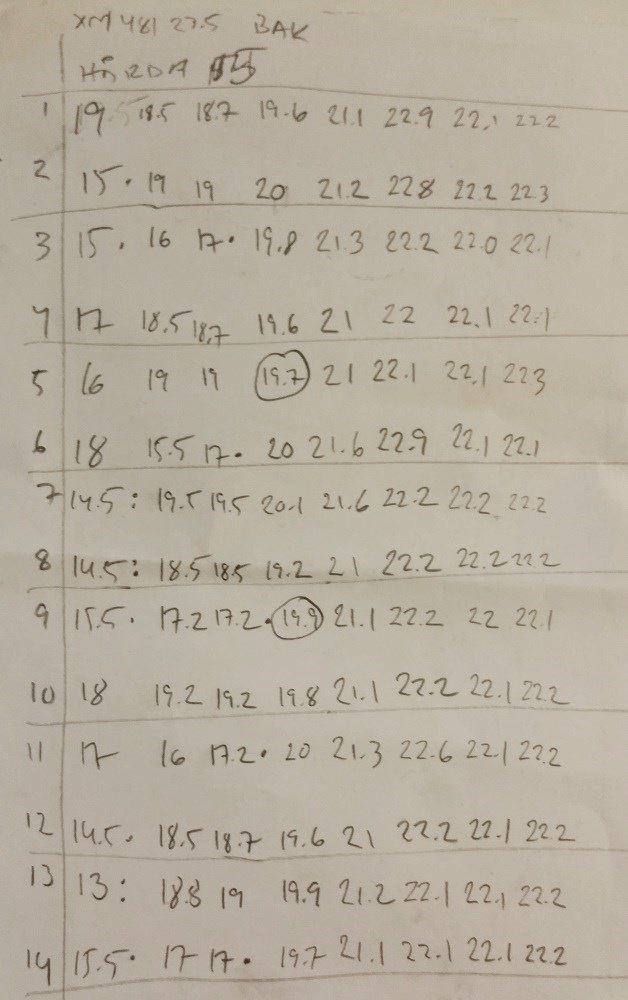 XM 481 27.5 BAK
HÅRDA 55
1 19.5 18.5 18.7 19.6 21.1 22.9 22.1 22.2
2 15 • 19 19 20 21.2 22.8 22.2 22.3
3 15 • 16 17 • 19.8 21.3 22.2 22.0 22.1
4 17 18.5 18.7 19.6 21 22 22.1 22.1
5 16 19 19 19.7 21 22.1 22.1 22.3
6 18 15.5 17 • 20 21.6 22.9 22.1 22.1
7 14.5 : 19.5 19.5 20.1 21.6 22.2 22.2 22.2
8 14.5 : 18.5 18.5 19.2 21 22.2 22.2 22.2
9 15.5 • 17.2 17.2 • 19.9 21.1 22.2 22 22.1
10 18 19.2 19.2 19.8 21.1 22.2 22.1 22.2
11 17 16 17.2 • 20 21.3 22.6 22.1 22.2
12 14.5 • 18.5 18.7 19.6 21 22.2 22.1 22.2
13 13 : 18.8 19 19.9 21.2 22.1 22.1 22.2
14 15.5 • 17 17 • 19.7 21.1 22.1 22.1 22.2